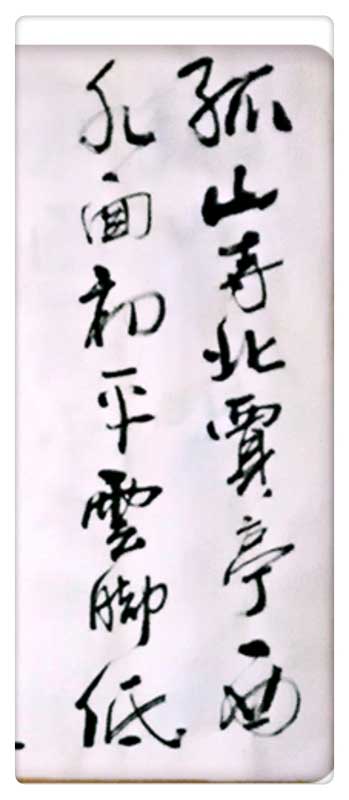 孤山寺北賈亭西
水面初平雲脚低